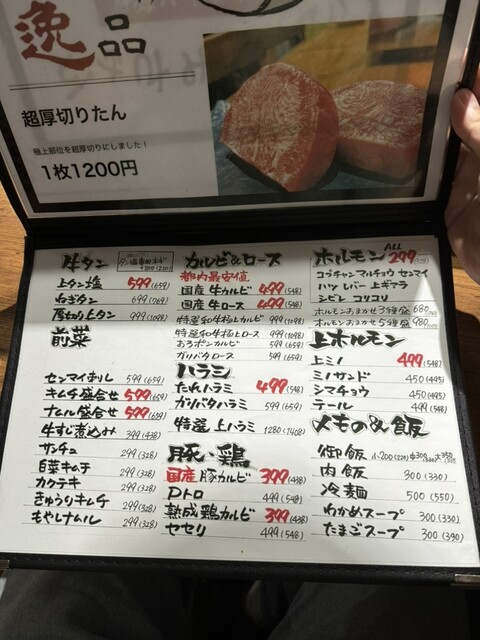 逸品
超厚切りたん
極上部位を超厚切りにしました！
1枚1200円
牛タン
上タン塩 599(659)
ねぎタン 699(769)
厚切上タン 999(1098)
前菜
センマイ刺し 599(659)
キムチ盛合せ 599(659)
ナムル盛合せ 599(659)
牛すじ煮込み 399(438)
サンチュ 299(328)
白菜キムチ 299(328)
カクテキ 299(328)
きゅうりキムチ 299(328)
もやしナムル 299(328)
カルビ&ロース
都内最安値
国産 牛カルビ 499(548)
国産 牛ロース 499(548)
特選和牛極上カルビ 999(1098)
特選和牛極上ロース 999(1098)
おろポンカルビ 599(659)
ガリバタロース 599(659)
ハラミ
たれハラミ 499(548)
ガリバタハラミ 599(659)
特選 上ハラミ 1280(1408)
豚・鶏
国産 豚カルビ 399(438)
Pトロ 499(548)
熟成鶏カルビ 399(438)
セセリ 499(548)
ホルモン ALL 299
コブチャン マルチョウ センマイ
ハツ レバー 上ギアラ
シビレ コリコリ
ホルモンおまかせ3種盛 680
ホルモンおまかせ5種盛 980
上ホルモン
上ミノ 499(548)
ミノサンド 450(495)
シマチョウ 450(495)
テール 499(548)
〆もの&飯
御飯 小200(220) 中300 大350
肉飯 300(330)
冷麺 500(550)
わかめスープ 300(330)
たまごスープ 300(390)